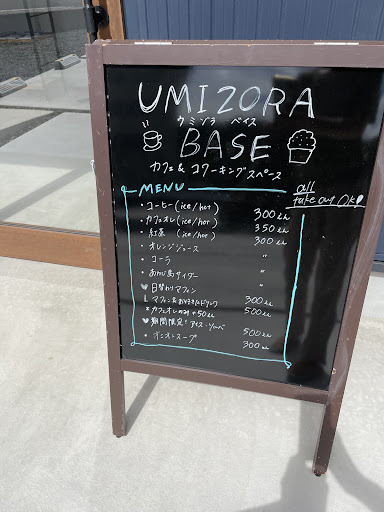 UMIZORA
ウミゾラ ベイス
BASE
カフェ & コワーキングスペース
MENU
all
take out OK!
・コーヒー (ice/hot) 300えん
・カフェオレ (ice/hot) 350えん
・紅茶 (ice/hot) 300えん
・オレンジジュース 〃
・コーラ 〃
・あわじ島サイダー 〃
♥日替わりマフィン 300えん
マフィン&お好きなドリンク 500えん
※カフェオレのみ+50えん
♥期間限定!アイス・ソルベ 500えん
・オニオンスープ 300えん